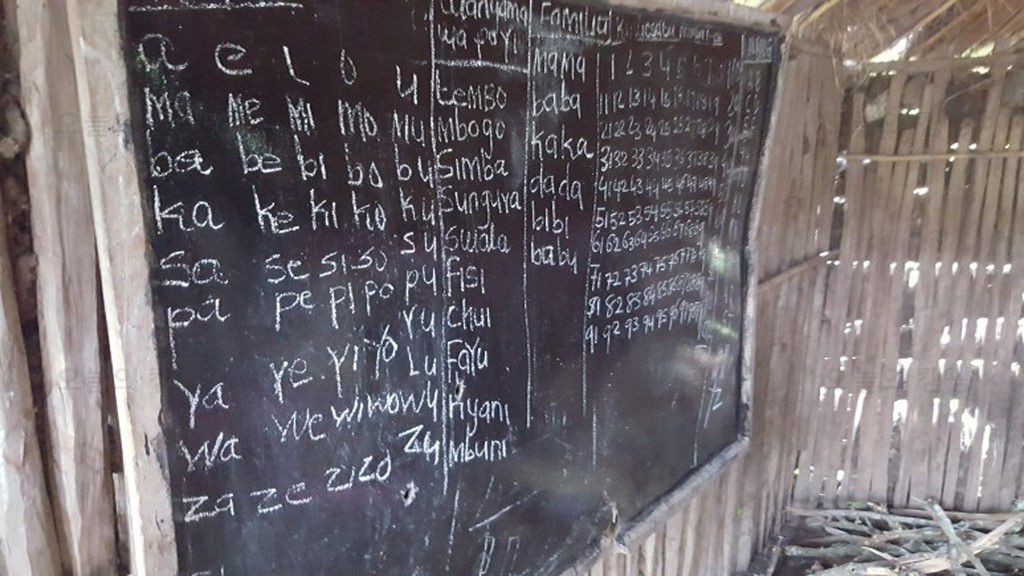 a e i o u
Ma Me Mi Mo Mu
ba be bi bo bu
ka ke ki ko ku
sa se si so su
pa pe pi po pu
ya ye yi yo yu
Lu
wa we wi wo wu
za ze zi zo zu
Wanyama
wa porini
tembo
mbogo
Simba
Sungura
Swala
Fisi
chui
Faru
Nyani
Mbuni
Familia
mama
baba
kaka
dada
bibi
babu
1 2 3 4 5
11 12 13 14 15 16 17 18 19
21 22 23 24 25 26 27 28 29
31 32 33 34 35 36 37 38 39
41 42 43 44 45 46 47 48 49
51 52 53 54 55 56 57 58
61 62 63 64 65 66 67 68
71 72 73 74 75 76 77 78
81 82 83 84 85 86 87 88
91 92 93 94 95 96 97 98